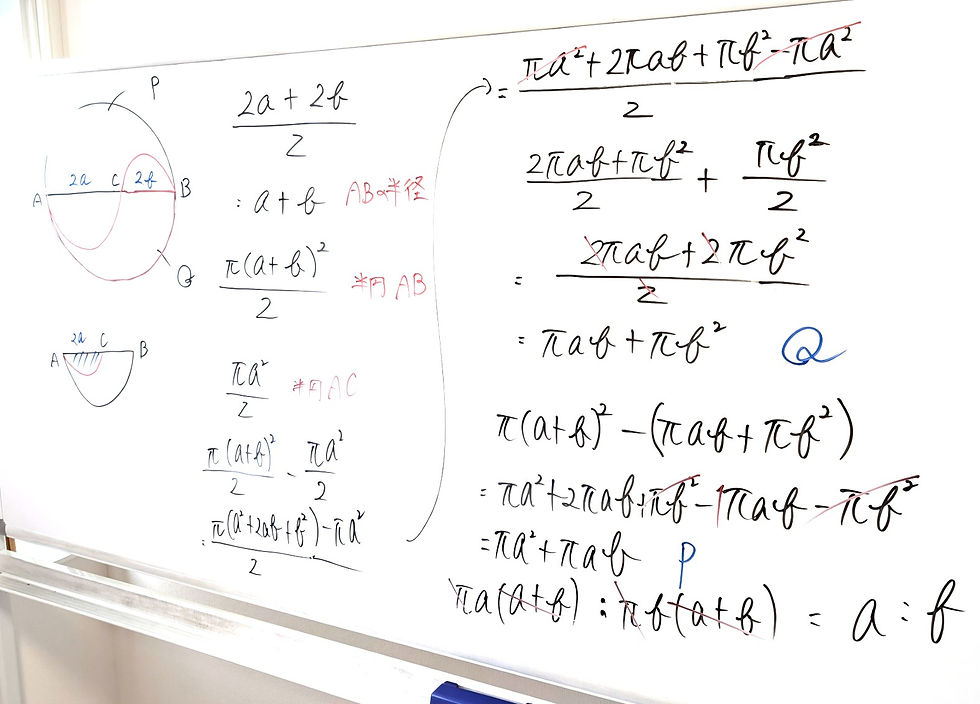 P
2a C 2b
A B
Q
2a C
A B
2a + 2b / 2
: a + b ABの半径
π(a+b)² / 2 半円AB
πa² / 2 半円AC
π(a+b)² / 2 - πa² / 2
: π(a²+2ab+b²)-πa² / 2
= πa²+2πab+πb²-πa² / 2
2πab+πb² / 2 + πb² / 2
= 2πab+2πb² / 2
= πab+πb² Q
π(a+b)²-(πab+πb²)
= πa²+2πab+πb²-πab-πb²
=πa²+πab P
πa(a+b) : πb(a+b) = a : b